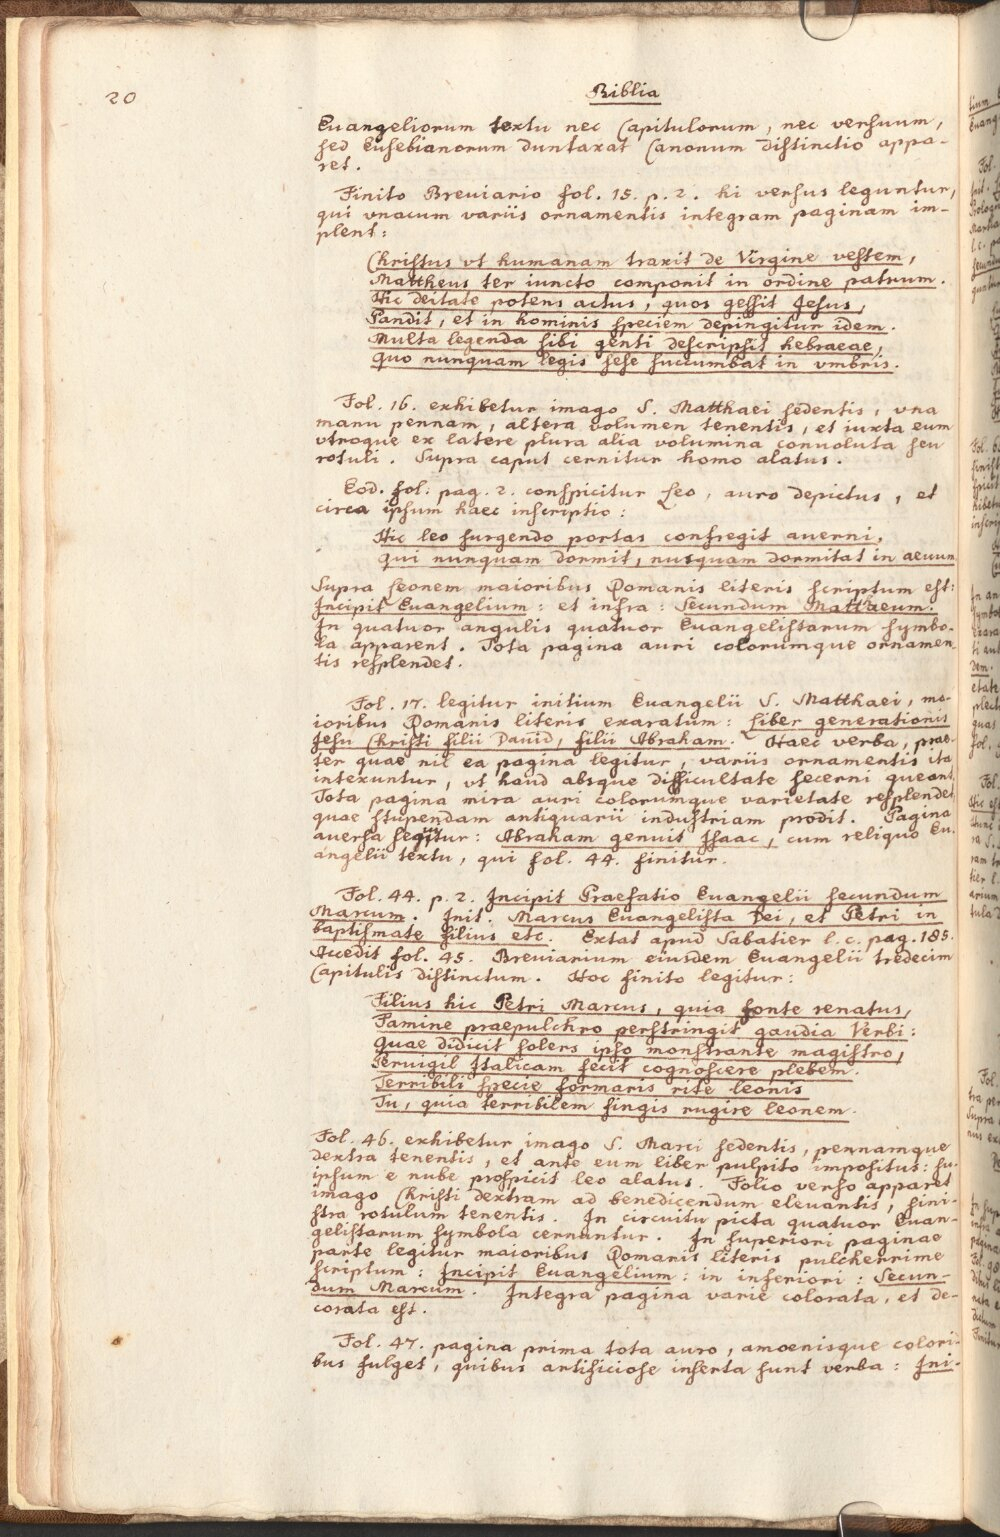 20
Biblia
Euangeliorum textu nec Capitulorum, nec versuum,
sed Eusebianorum duntaxat Canonum distinctio appa-
ret.
Finito Breuiario fol. 15. p. 2. hi versus leguntur,
qui vnacum variis ornamentis integram paginam im-
plent:
Christus vt humanam traxit de Virgine vestem,
Mattheus ter iuncto componit in ordine patrum.
Hic deitate potens actus, quos gessit Jesus,
Pandit, et in hominis speciem depingitur idem.
Multa legenda sibi genti descripsit hebraeae,
Quo nunquam legis sese succumbat in vmbris.
Fol. 16. exhibetur imago S. Matthaei sedentis, vna
manu pennam, altera volumen tenentis, et iuxta eum
vtroque ex latere plura alia volumina conuoluta seu
rotuli. Supra caput cernitur homo alatus.
Eod. fol. pag. 2. conspicitur Leo, auro depictus, et
circa ipsum haec inscriptio:
Hic leo surgendo portas confregit auerni,
Qui nunquam dormit, nusquam dormitat in aeuum
Supra Leonem maioribus Romanis literis scriptum est:
Incipit Euangelium: et infra: Secundum Matthaeum.
In quatuor angulis quatuor Euangelistarum symbo-
la apparent. Tota pagina auri colorumque ornamen-
tis resplendet.
Fol. 17. legitur initium Euangelii S. Matthaei, ma-
ioribus Romanis literis exaratum: Liber generationis
Jesu Christi filii Dauid, filii Abraham. Haec verba, prae-
ter quae nil ea pagina legitur, variis ornamentis ita
intexuntur, vt haud absque difficultate secerni queant.
Tota pagina mira auri colorumque varietate resplendet,
quae stupendam antiquarii industriam prodit. Pagina
auersa legitur: Abraham genuit Isaac, cum reliquo Eu-
angelii textu, qui fol. 44. finitur.
Fol. 44. p. 2. Incipit Praefatio Euangelii secundum
Marcum. Init. Marcus Euangelista Dei, et Petri in
baptismate filius etc. Extat apud Sabatier l. c. pag. 185.
Accedit fol. 45. Breuiarium eiusdem Euangelii tredecim
Capitulis distinctum. Hoc finito legitur:
Filius hic Petri Marcus, quia fonte renatus,
Famine praepulchro perstringit gaudia Verbi:
Quae didicit solers ipso monstrante magistro,
Peruigil Italicam fecit cognoscere plebem.
Terribili specie formaris rite leonis
Tu, quia terribilem fingis rugire leonem.
Fol. 46. exhibetur imago S. Marci sedentis, pennamque
dextra tenentis, et ante eum liber pulpito impositus: su-
ipsum e nube prospicit leo alatus. Folio verso apparet
imago Christi dextram ad benedicendum eleuantis, sini-
stra rotulum tenentis. In circuitu picta quatuor Euan-
gelistarum symbola cernuntur. In superiori paginae
parte legitur maioribus Romanis literis pulcherrime
scriptum: Incipit Euangelium: in inferiori: Secun-
dum Marcum. Integra pagina varie colorata, et de-
corata est.
Fol. 47. pagina prima tota auro, amoenisque colori-
bus fulget, quibus artificiose inserta sunt verba: Ini-